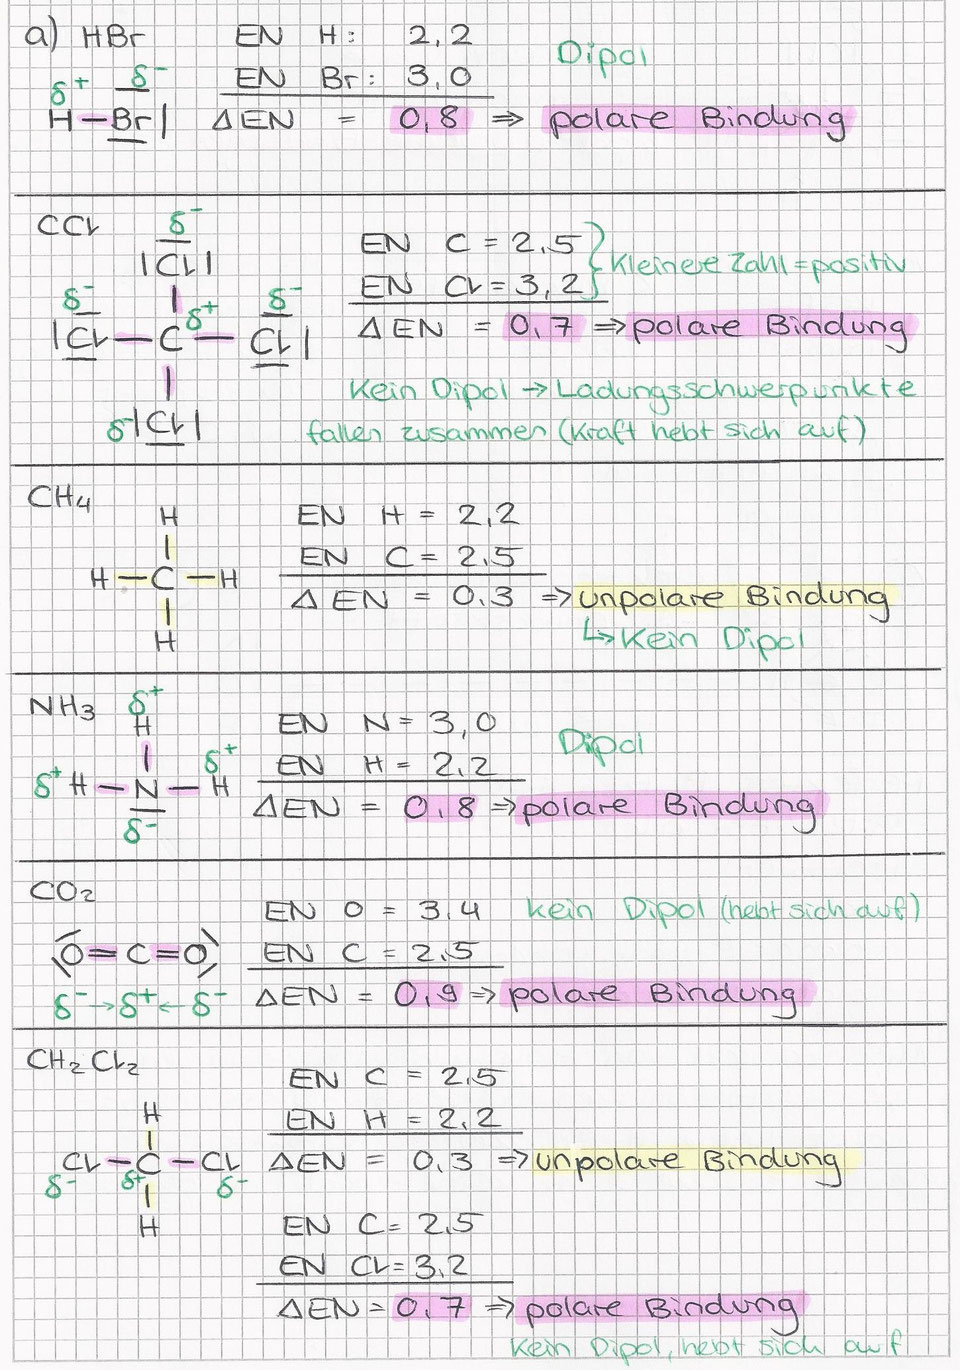 a) HBr EN H: 2,2 Dipol
δ+ δ- EN Br: 3,0
H–Br| ΔEN = 0,8 ⇒ polare Bindung
CCl δ- EN C = 2,5
|Cl| EN Cl = 3,2 } Kleinere Zahl = positiv
δ- δ+ δ-
|Cl–C–Cl| ΔEN = 0,7 ⇒ polare Bindung
Kein Dipol → Ladungsschwerpunkte
δ-|Cl| fallen zusammen (Kraft hebt sich auf)
CH4
H EN H = 2,2
EN C = 2,5
H–C–H ΔEN = 0,3 ⇒ unpolare Bindung
H ↳ Kein Dipol
NH3 δ+
H EN N = 3,0 Dipol
δ+ EN H = 2,2
δ+ H–N–H ΔEN = 0,8 ⇒ polare Bindung
δ-
CO2 EN O = 3,4 kein Dipol (hebt sich auf)
O=C=O EN C = 2,5
δ- → δ+ ← δ- ΔEN = 0,9 ⇒ polare Bindung
CH2Cl2 EN C = 2,5
H EN H = 2,2
Cl–C–Cl ΔEN = 0,3 ⇒ unpolare Bindung
δ- δ+ δ-
H EN C = 2,5
EN Cl = 3,2
ΔEN = 0,7 ⇒ polare Bindung
Kein Dipol, hebt sich auf